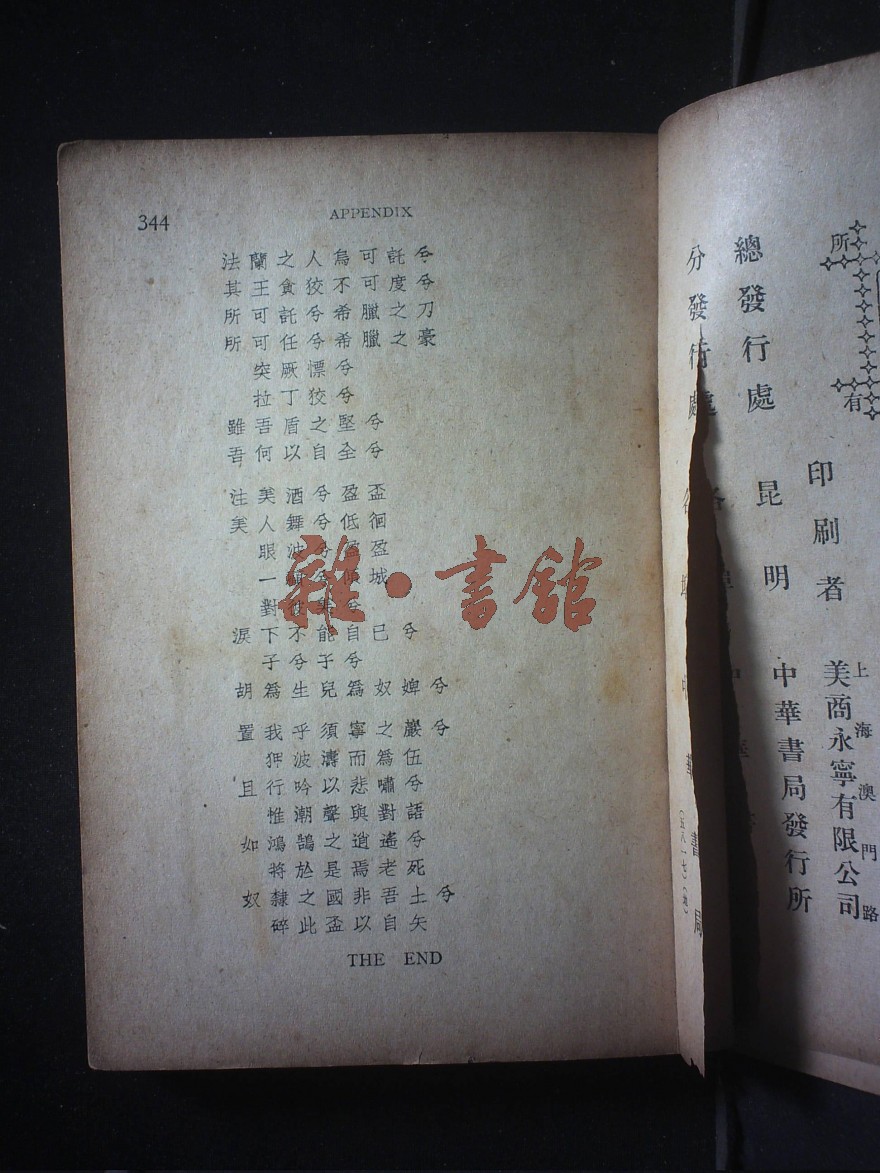 344
APPENDIX
法蘭之人烏可託兮
其王貪狡不可度兮
所可託兮希臘之刀
所可任兮希臘之豪
突厥慓兮
拉丁狡兮
雖吾盾之堅兮
吾何以自全兮
注美酒兮盈盃
美人舞兮低徊
眼波兮盈盈
一顧兮傾城
對彼美兮
淚下不能自已兮
子兮子兮
胡為生兒為奴婢兮
置我乎須寧之巖兮
狎波濤而為伍
且行吟以悲嘯兮
惟潮聲與對語
如鴻鵠之逍遙兮
將於是焉老死
奴隸之國非吾土兮
碎此盃以自矢
THE END
雜·書館
所
有
印刷者
上海澳門路
美商永寧有限公司
總發行處
昆明
中華書局發行所
分發行處
書局